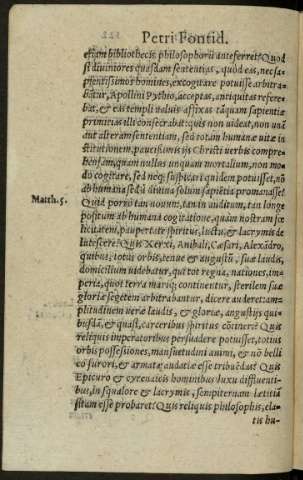 Petri Fontid.
etiam bibliothecis philosophorū anteferret? Quod
si diuiniores quasdam sententias, quòd eas, nec sa-
pientissimos homines, excogitare potuisse arbitra-
batur, Apollini Pythio, acceptas, antiquitas refere-
bat, & eas templi valuis affixas tãquam sapientiæ
primitias illi consecrabāt: quis non uideat, non unã
aut alteram sententiam, sed totam humanæ uitæ in
stitutionem, paucissimis ijs Christi uerbis compre-
hensam, quam nullus unquam mortalium, non mo-
do cogitare, sed neq; suspicari quidem potuisset, nõ
ab humana sed à diuina solum sapiẽtia promanasse?
Matth. 5. Quid porrò tan nouum, tan in auditum, tan longe
positum ab humana cogitatione, quàm nostram fœ
licitatem, paupertate spiritus, luctu, & lacrymis de
litescere? Quis Xerxi, Anibali, Cæsari, Alexãdro,
quibus, totus orbis, tenue & angustũ, suæ laudis,
domicilium uidebatur, qui tot regna, nationes, im-
peria, quot terra mariq; continentur, sterilem suæ
gloriæ segetem arbitrabantur, dicere auderet: am-
plitudinem ueræ laudis, & gloriæ, angustijs qui-
busdã, & quasi, carceribus spiritus cõtineri? Quis
reliquis imperatoribus persuadere potuisset, totius
orbis possessiones, mansuetudini animi, & nõ belli
co furori, & armatæ audatiæ esse tribuẽdas? Quis
Epicuro & cyrenaicis hominibus luxu diffluenti-
bus, in squalore & lacrymis, sempiternam lætitiã
sitam esse probaret? Quis reliquis philosophis, ela-
tis hu-